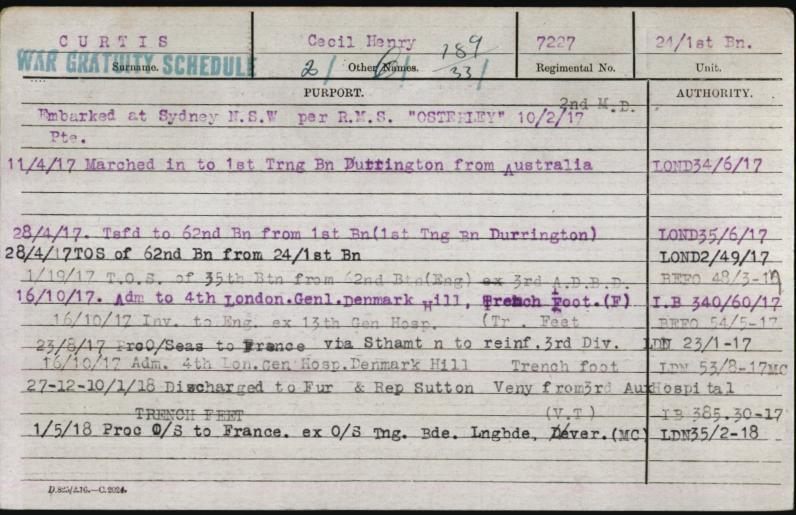 CURTIS Cecil Henry 7227 24/1st Bn.
WAR GRATUITY SCHEDULE
Surname. Other Names. Regimental No. Unit.
2/ 6/ 189/33/
PURPORT. AUTHORITY.
2nd M.D.
Embarked at Sydney N.S.W per R.M.S. "OSTERLEY" 10/2/17
Pte.
11/4/17 Marched in to 1st Trng Bn Durrington from Australia LOND34/6/17
28/4/17. Tsfd to 62nd Bn from 1st Bn(1st Tng Bn Durrington) LOND35/6/17
28/4/17TOS of 62nd Bn from 24/1st Bn LOND2/49/17
1/19/17 T.O.S. of 35th Btn from 62nd Btn(Eng) ex 3rd A.D.B.D. BEFO 48/3-17
16/10/17. Adm to 4th London.Genl.Denmark Hill, Trench Foot.(F) I.B 340/60/17
16/10/17 Inv. to Eng. ex 13th Gen Hosp. (Tr. Feet BEFO 54/5-17
23/8/17 ProO/Seas to France via Sthamt n to reinf.3rd Div. LDN 23/1-17
16/10/17 Adm. 4th Lon.Gen Hosp.Denmark Hill Trench foot LDN 53/8-17MC
27-12-10/1/18 Discharged to Fur & Rep Sutton Veny from3rd AuxHospital
TRENCH FEET (V.T) IB 385.30-17
1/5/18 Proc O/S to France. ex O/S Tng. Bde. Lngbde, Dever.(MC) LDN35/2-18
D.825/2.16.—C.2024.